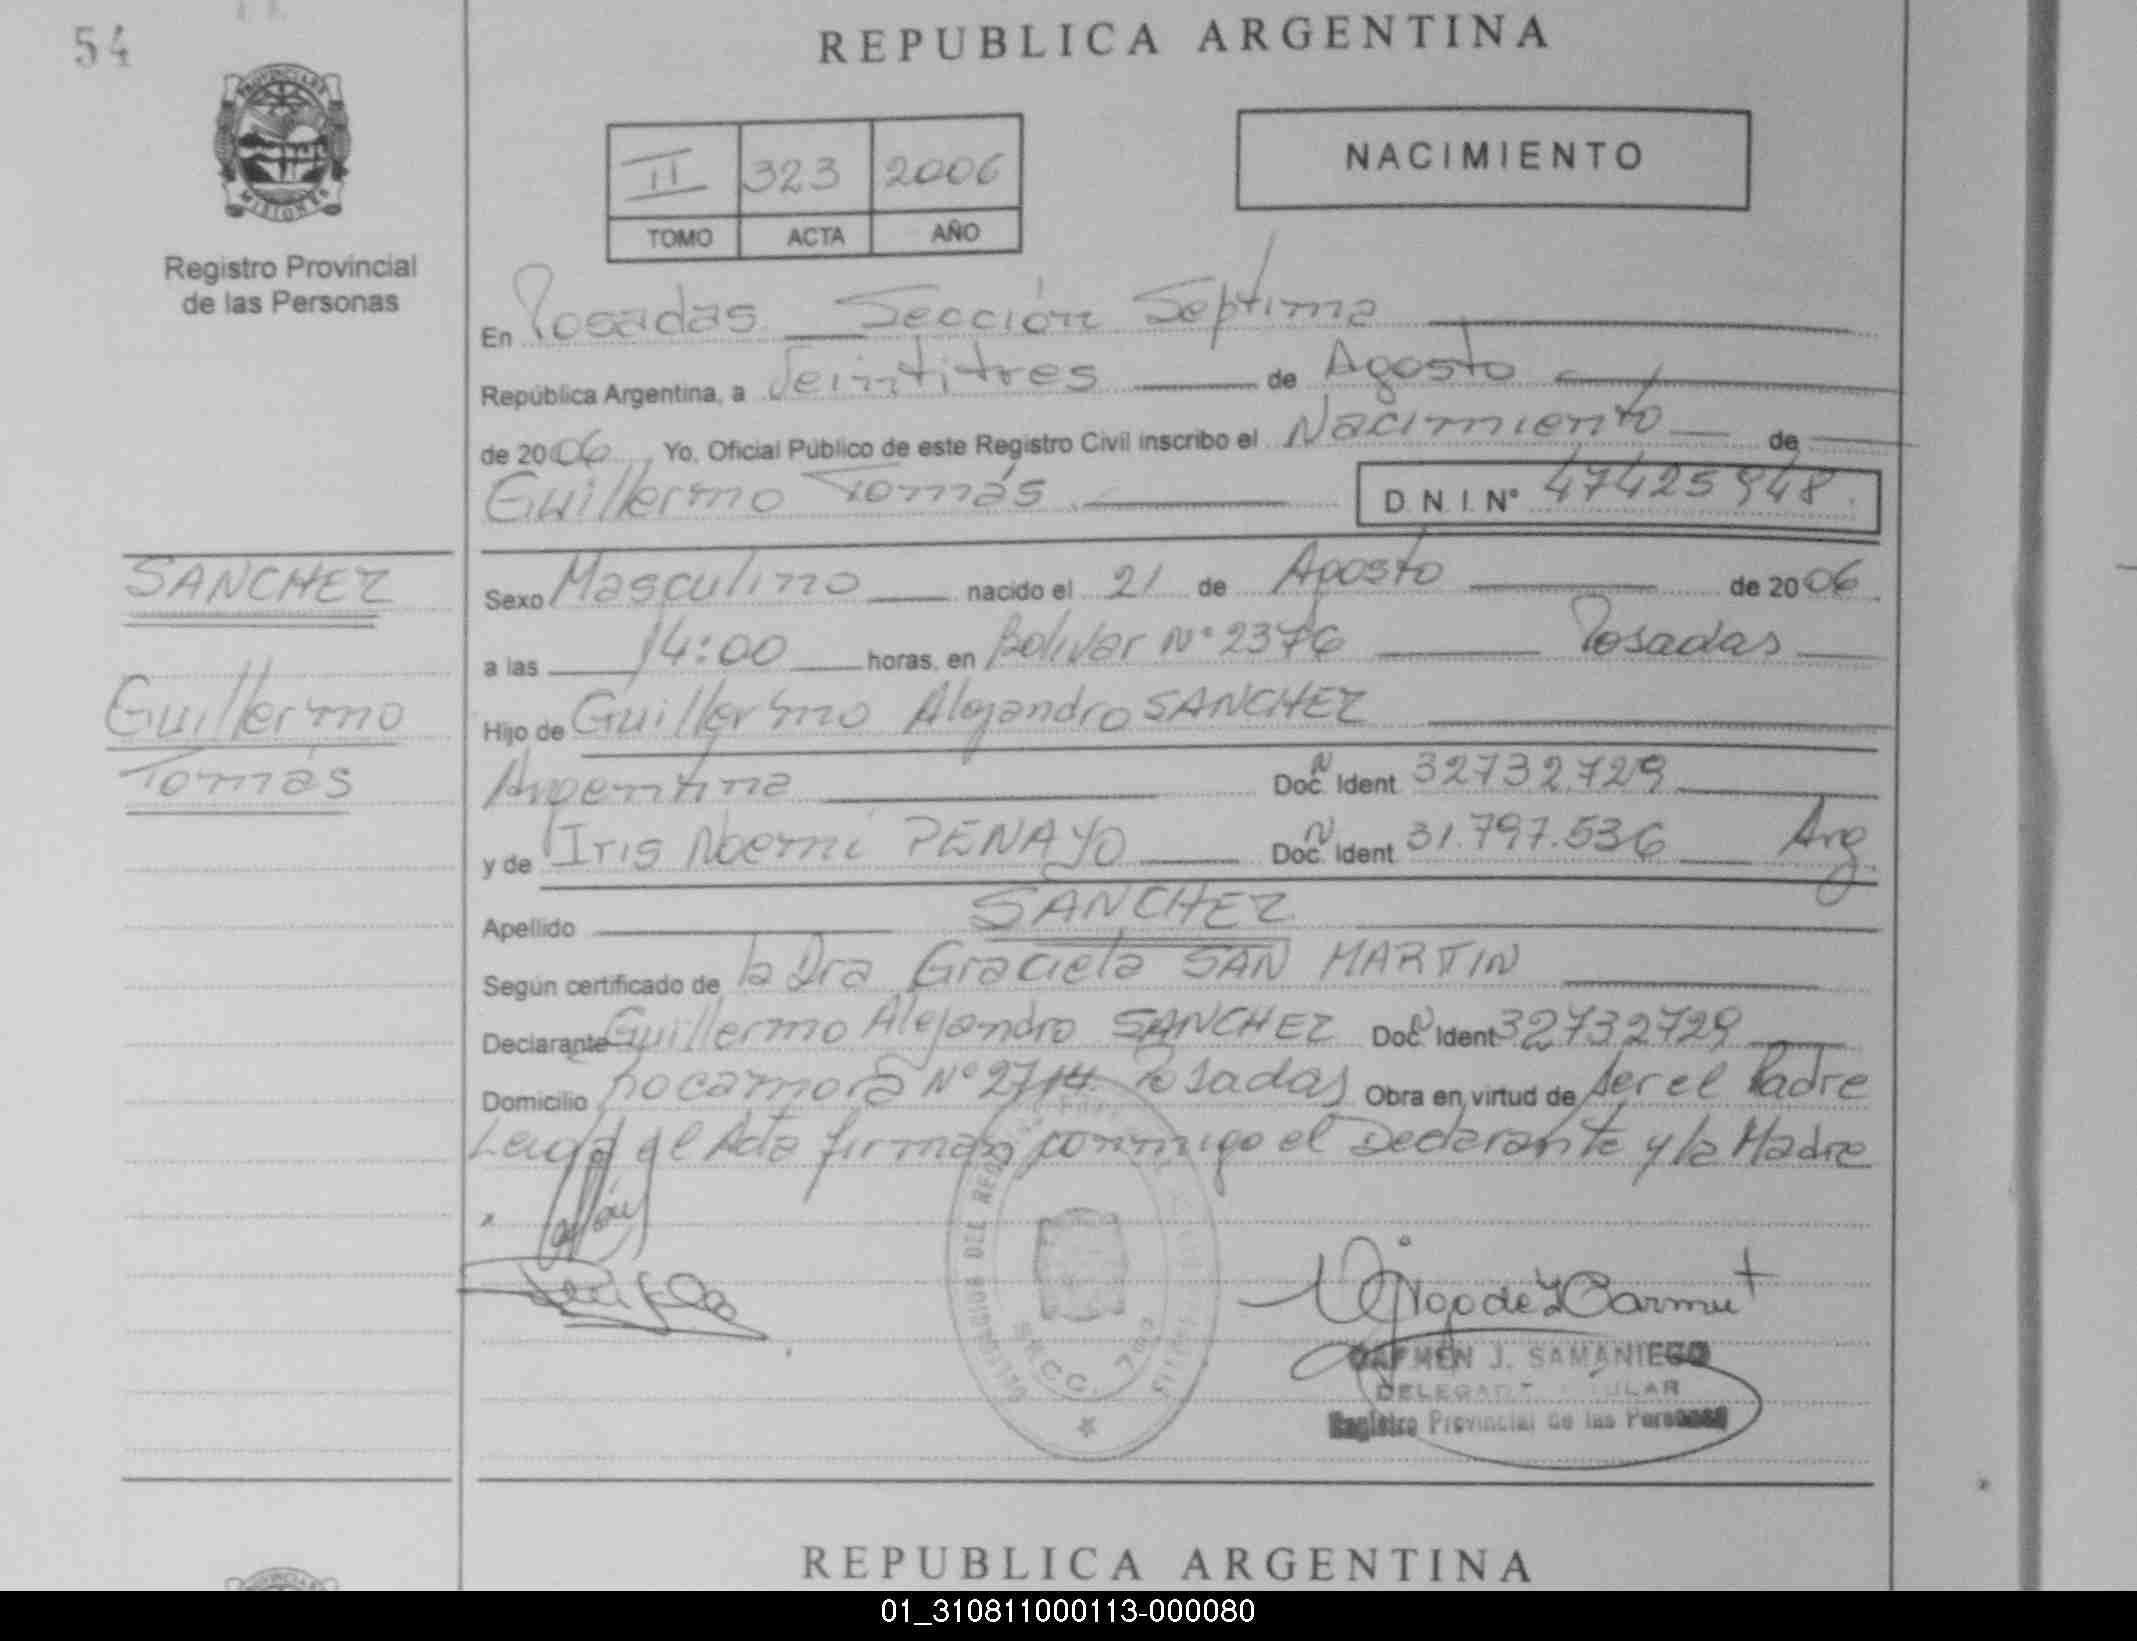 54
REPUBLICA ARGENTINA
PROVINCIA DE
MISIONES
Registro Provincial
de las Personas
II 323 2006
TOMO ACTA AÑO
NACIMIENTO
En Posadas Sección Septima
República Argentina, a Veintitres de Agosto
de 2006, Yo, Oficial Público de este Registro Civil inscribo el Nacimiento de
Guillermo Tomás D.N.I. N° 47425948
SANCHEZ
Guillermo
Tomás
Sexo Masculino nacido el 21 de Agosto de 2006
a las 14:00 horas, en Bolivar N° 2376 Posadas
Hijo de Guillermo Alejandro SANCHEZ
Argentina Doc. N Ident 32732729
y de Iris Noemi PENAYO Doc. N Ident 31.797.536 Arg
Apellido SANCHEZ
Según certificado de la Dra Graciela SAN MARTIN
Declarante Guillermo Alejandro SANCHEZ Doc. Ident 32732729
Domicilio Rocamora N° 2714 Posadas Obra en virtud de ser el Padre
Leída el Acta firman conmigo el Declarante y la Madre
SECC. 7ma
CARMEN J. SAMANIEGO
DELEGADA TITULAR
Registro Provincial de las Personas
REPUBLICA ARGENTINA
01_310811000113-000080